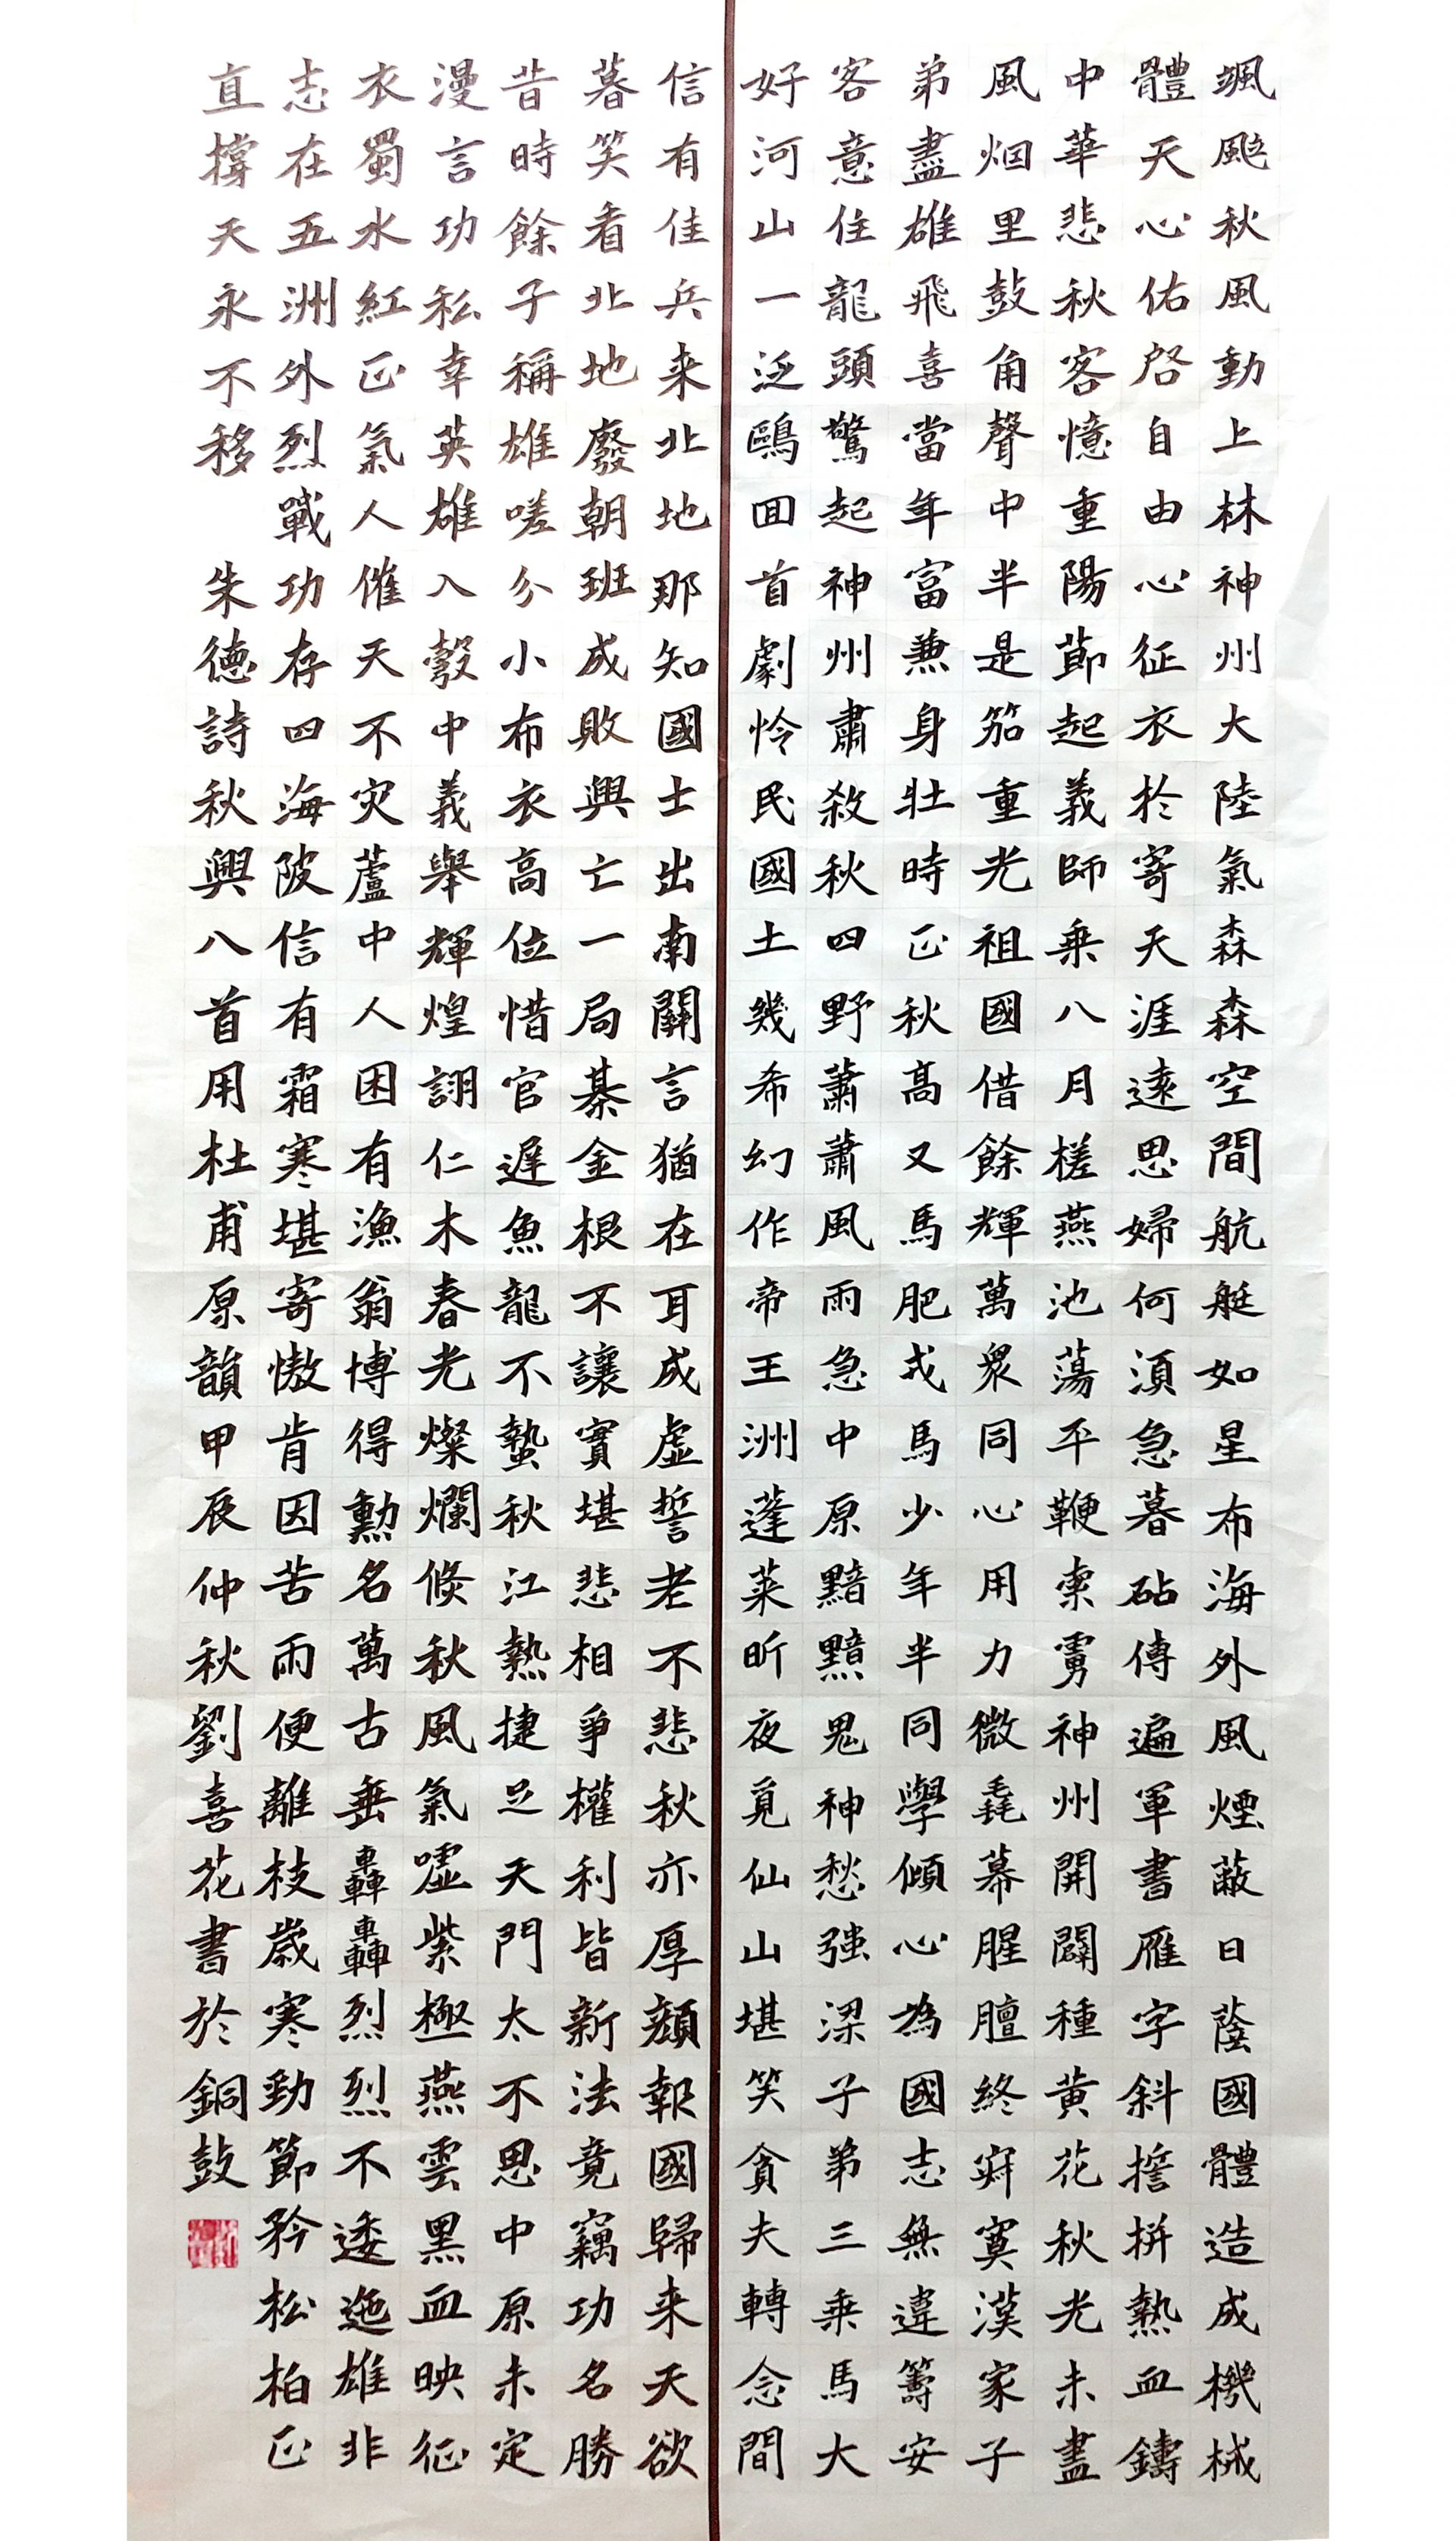 颯颱秋風動上林神州大陸氣森森空間航艇如星布海外風煙蔽日蔭國體造成機械
體天心佑啓自由心征衣於寄天涯遠思婦何須急暮砧傳遍軍書雁字斜擔拼熱血鑄
中華悲秋客憶重陽節起義師乘八月槎燕池蕩平鞭索虜神州開闢種黃花秋光未盡
風烟里鼓角聲中半是笳重光祖國借餘輝萬眾同心用力微毳幕腥膻終寂寞漢家子
弟盡雄飛喜當年富兼身壯時正秋高又馬肥戎馬少年半同學傾心為國志無違籌安
客意住龍頭驚起神州肅殺秋四野蕭蕭風雨急中原黯黯鬼神愁强梁子弟三乘馬大
好河山一泛鷗回首劇憐民國土幾希幻作帝王洲蓬萊昕夜覓仙山堪笑貪夫轉念間
信有佳兵来北地那知國士出南關言猶在耳成虛誓老不悲秋亦厚顏報國歸来天欲
暮笑看北地廢朝班成敗興亡一局棊金根不讓實堪悲相爭權利皆新法竟竊功名勝
昔時餘子稱雄嗟分小布衣高位惜官遲魚龍不蟄秋江熱捷足天門太不思中原未定
漫言功私幸英雄入彀中義舉輝煌詡仁木春光燦爛倏秋風氣噓紫極燕雲黑血映征
衣蜀水紅正氣人催天不灾蘆中人困有漁翁博得勲名萬古垂轟轟烈烈不逶迤雄非
志在五洲外烈戰功存四海陂信有霜寒堪寄傲肯因苦雨便離枝歲寒勁節矜松柏正
直撐天永不移 朱德詩秋興八首用杜甫原韻甲辰仲秋劉喜花書於銅鼓